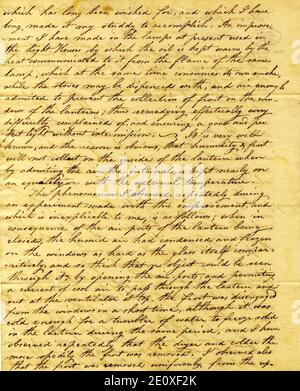 which has long been wished for, and which I have
long made it my study to accomplish. An improve-
ment I have made on the lamps at present used in
the Light Houses by which the oil is kept warm by the
heat communicated to it from the flame of the same
lamp, which at the same time consumes its own smoke,
while the stoves may be dispensed with, and air enough
admitted to prevent the collection of frost on the win-
dows of the lantern; thus remedying effectually every
difficulty complained of and ensuring a good and per-
fect light without intermission. It is very well
known, and the reason is obvious, that humidity & frost
will not collect on the inside of the lantern when
by admitting the air the internal is kept nearly on
an equality with the external temperature.
The phenomenon I observed repeatedly during
an experiment made with this improvement, and
which is inexplicable to me, is as follows; when in
consequence of the air ports of the lantern being
closed, the humid air had condensed and frozen
on the windows as hard as the glass itself compar-
atively and so thick that no object could be seen
through it, by opening the air ports, and permitting
a current of cool air to pass through the lantern and
out at the ventilator at top, the frost was disengaged
from the windows in a short time, although it was
cold enough for a tumbler of water to freeze solid
in the lantern during the same period, and I have
observed repeatedly that the dryer and colder the
more speedily the frost was removed. I observed also
that the frost was removed uniformly, from the up-
alamy
Image ID: 2E0XF2K
www.alamy.com